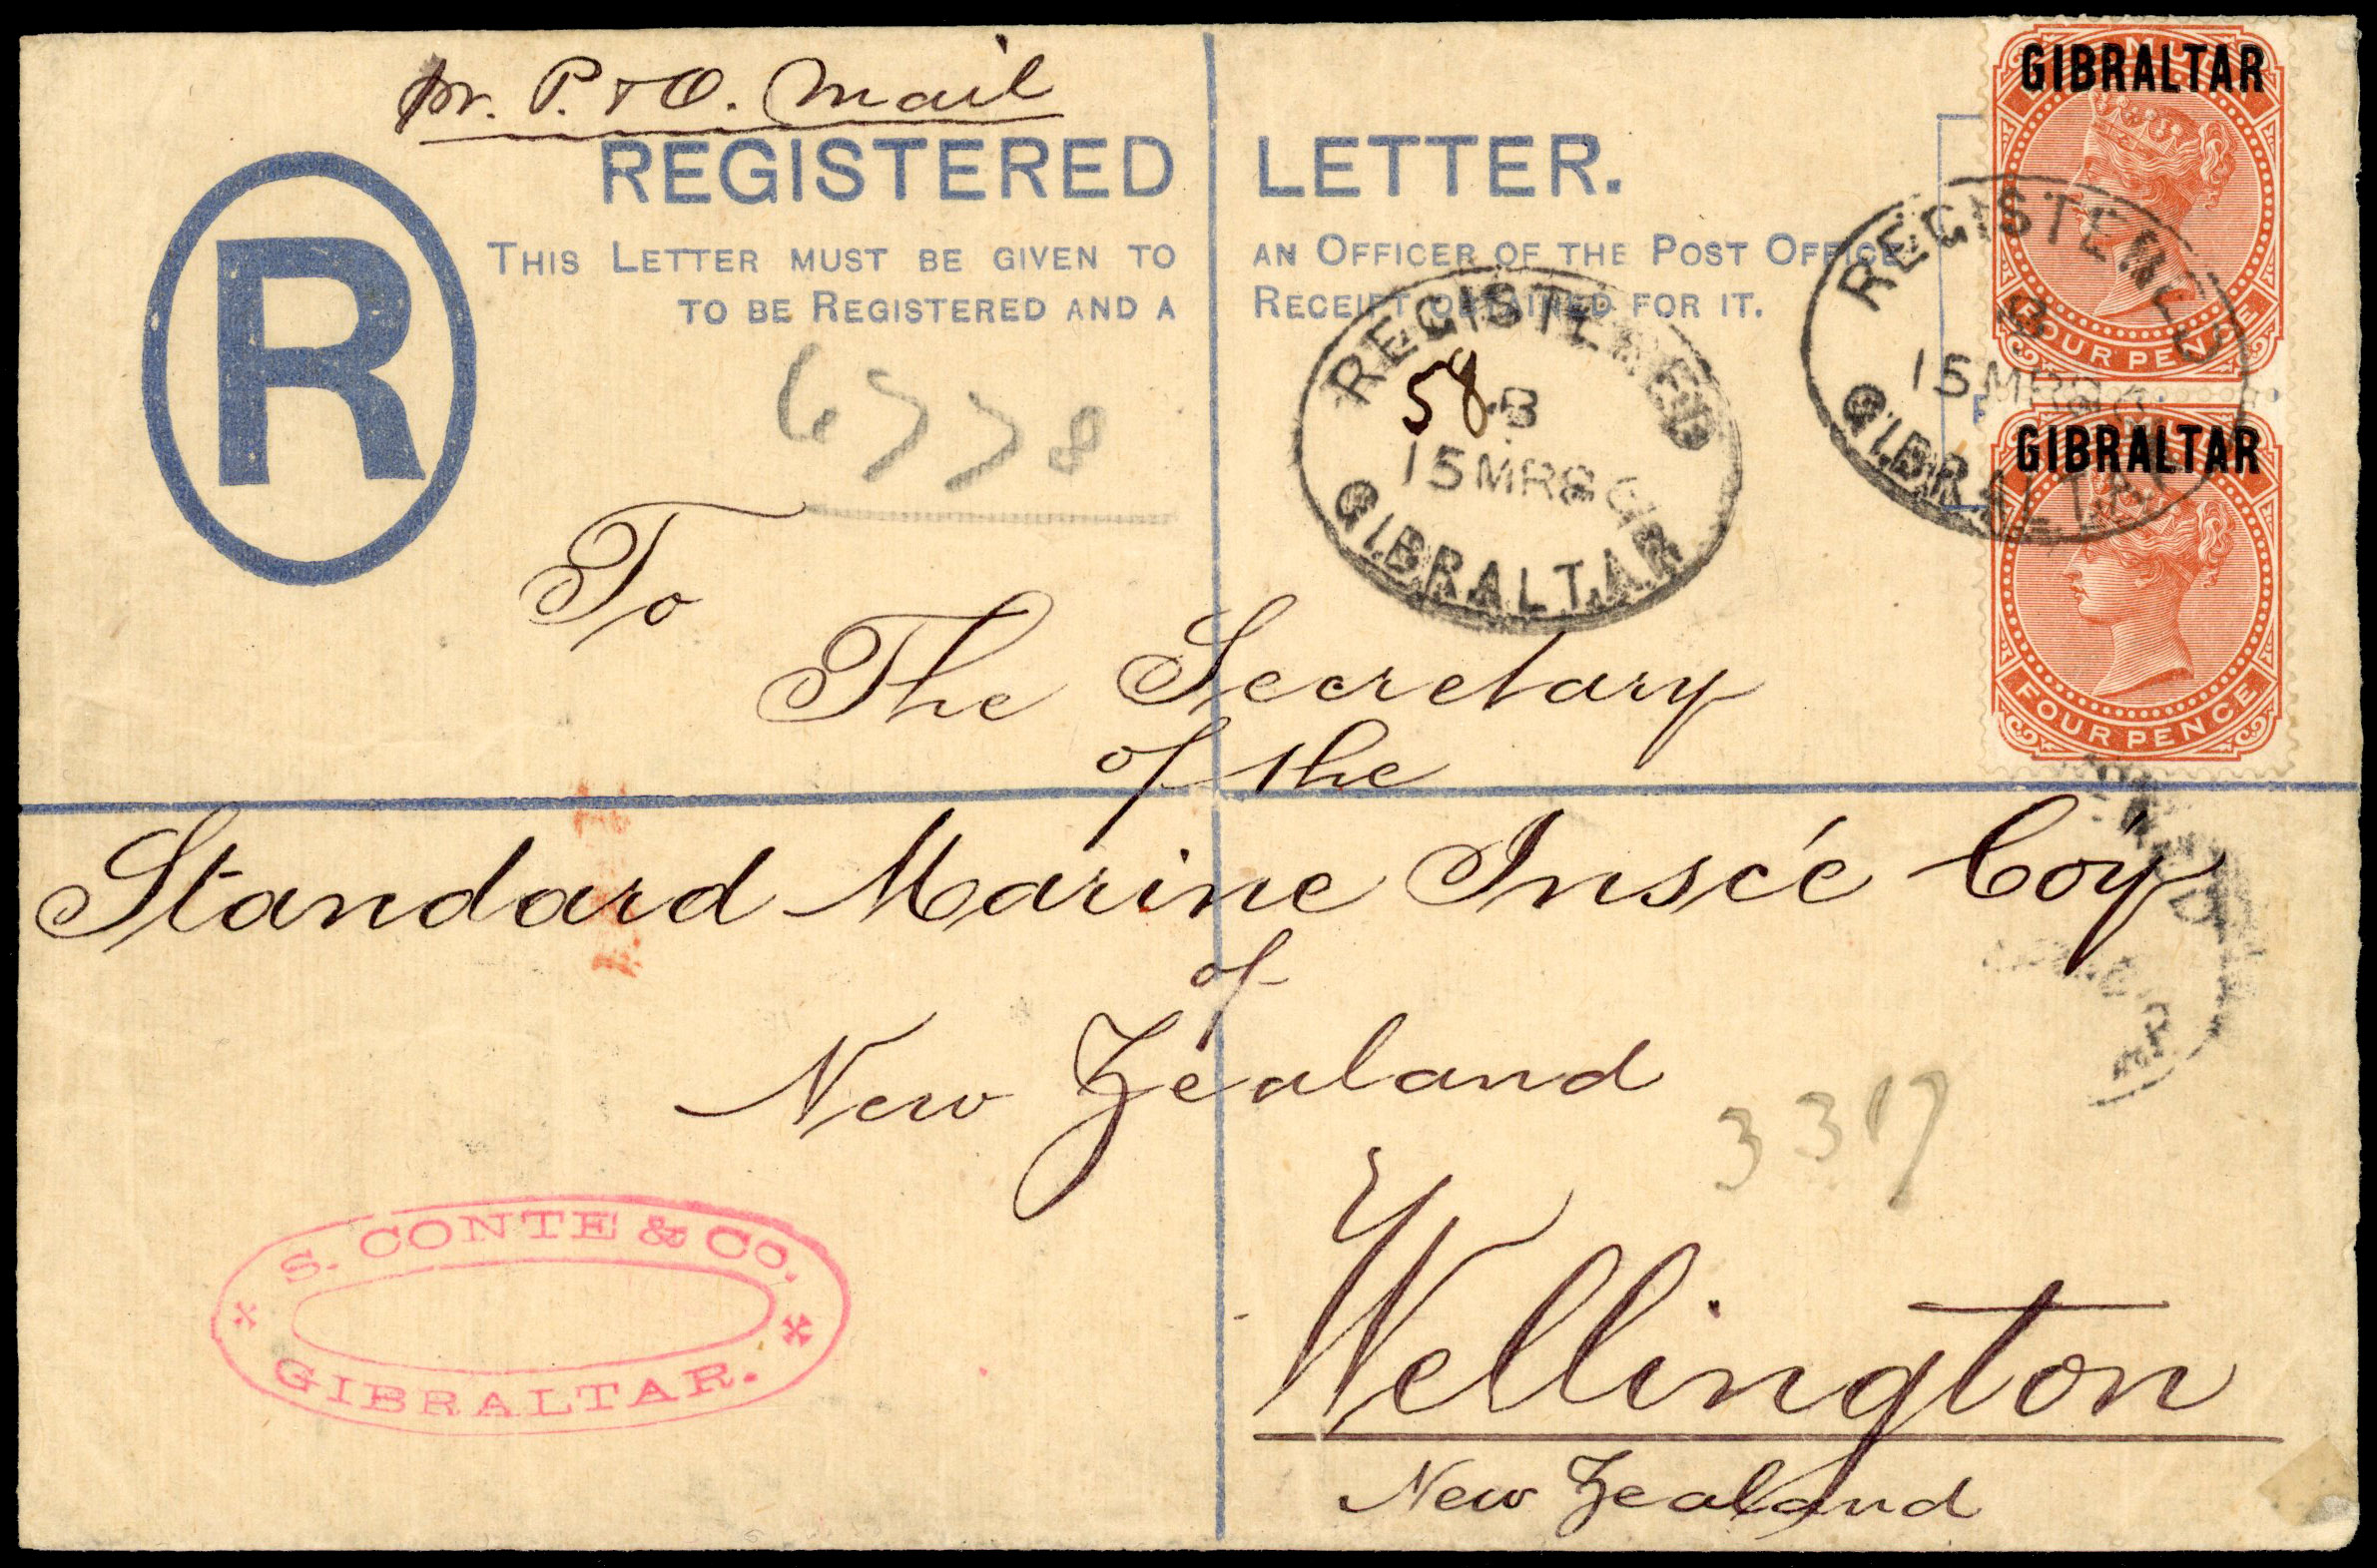 pr. P. & O. Mail
REGISTERED LETTER.
THIS LETTER MUST BE GIVEN TO AN OFFICER OF THE POST OFFICE
TO BE REGISTERED AND A RECEIPT OBTAINED FOR IT.
R
GIBRALTAR
FOUR PENCE
GIBRALTAR
FOUR PENCE
REGISTERED
B
15 MR 8
GIBRALTAR
58
REGISTERED
15 MR 8
GIBRALTAR
To
The Secretary
of the
Standard Marine Inscé Coy
of
New Zealand
3317
Wellington
New Zealand
S. CONTE & CO.
GIBRALTAR.